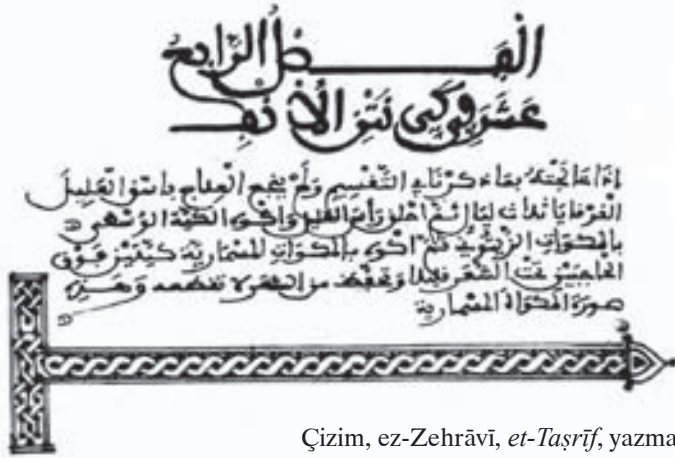 الفصل الرابع
عشر في كي نتن الأنف
إذا عالجته بما ذكرنا في التقسيم ولم ينجع العلاج
ليال ثم احلق رأس العليل واكوه الكية الوسطى
بالمكواة الزيتونية ثم اكوه بالمكواة المسمارية كيتين فوق
الحاجبين تحت الشعر قليلا وتحفظ من لا تقطعه وهذه
صورة المكواة المسمارية
Çizim, ez-Zehrāvī, et-Taṣrīf, yazma